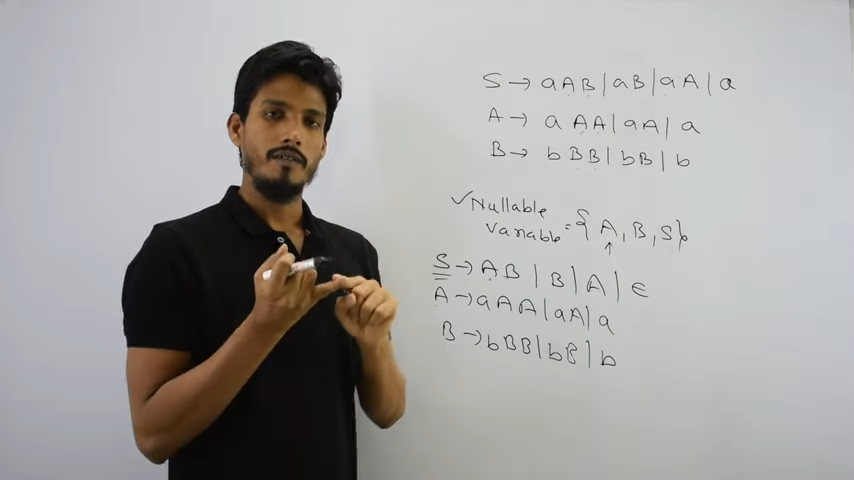 S → aAB | aB | aA | a
A → aAA | aA | a
B → bBB | bB | b
✓Nullable
Variable = {A, B, S}
↑
S → AB | B | A | ϵ
A → aAA | aA | a
B → bBB | bB | b